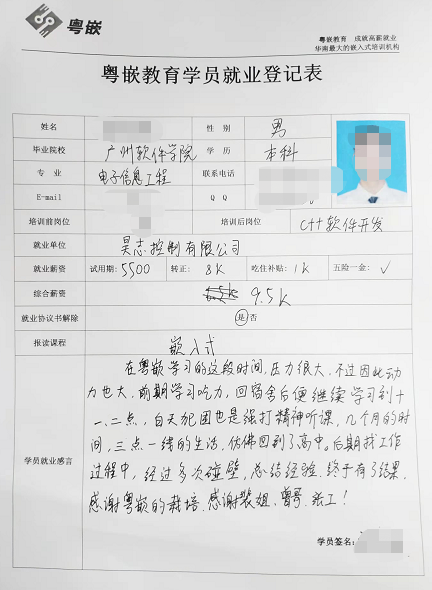 粤嵌
粤嵌教育 成就高薪就业
华南最大的嵌入式培训机构
粤嵌教育学员就业登记表
姓名 性别 男
毕业院校 广州软件学院 学历 本科
专业 电子信息工程 联系电话
E-mail Q Q
培训前岗位 培训后岗位 C++软件开发
就业单位 昊志控制有限公司
就业薪资 试用期:5500 转正:8K 吃住补贴:1k 五险一金:✓
综合薪资 9.5k
就业协议书解除 是/否
报读课程 嵌入式
在粤嵌学习的这段时间,压力很大,不过因此动
力也大,前期学习吃力,回宿舍后便继续学习到十
一、二点,白天犯困也是强打精神听课,几个月的时
间,三点一线的生活,仿佛回到了高中。后期找工作
过程中,经过多次碰壁,总结经验,终于有了结果,
感谢粤嵌的栽培、感谢裴姐、曾哥、张工!
学员就业感言
学员签名: